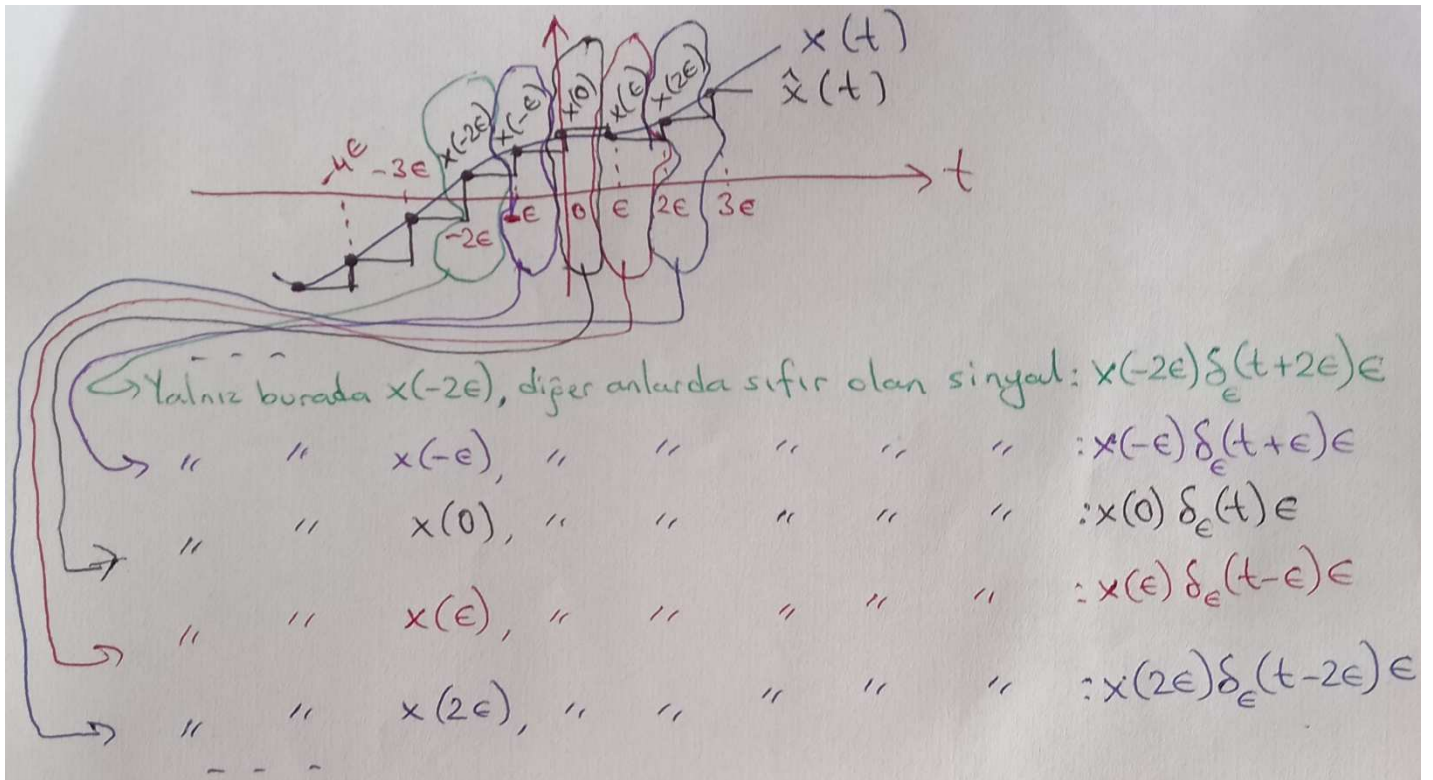 x(t)
x̂(t)
x(-2ϵ) x(-ϵ) x(0) x(ϵ) x(2ϵ)
-4ϵ -3ϵ -2ϵ -ϵ 0 ϵ 2ϵ 3ϵ t
- - -
Yalnız burada x(-2ϵ), diğer anlarda sıfır olan sinyal: x(-2ϵ)δ_ϵ(t+2ϵ)ϵ
" " x(-ϵ), " " " " " : x(-ϵ)δ_ϵ(t+ϵ)ϵ
" " x(0), " " " " " : x(0)δ_ϵ(t)ϵ
" " x(ϵ), " " " " " : x(ϵ)δ_ϵ(t-ϵ)ϵ
" " x(2ϵ), " " " " " : x(2ϵ)δ_ϵ(t-2ϵ)ϵ
- - -